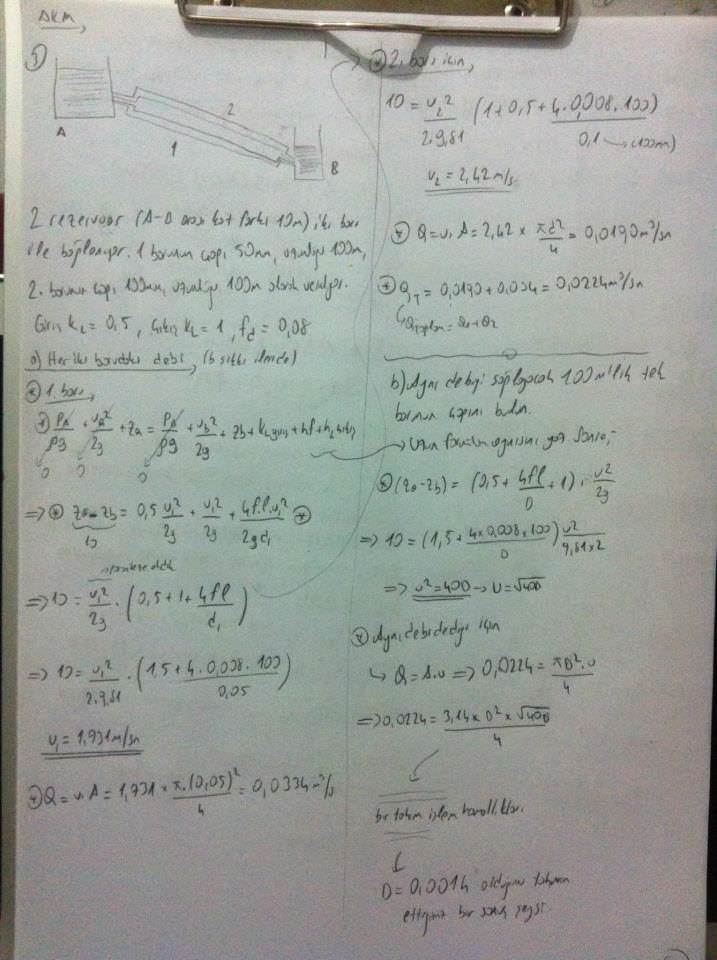 AKM
1)
A
2
1
B
2 rezervuar (A-B arası kot farkı 10m), iki boru
ile bağlanıyor. 1 borunun çapı 50mm, uzunluğu 100m,
2. borunun çapı 100mm, uzunluğu 100m olarak veriliyor.
Giriş k_L = 0,5, Çıkış k_L = 1, f_d = 0,08
a) Her iki borudaki debi,
* 1. boru,
* P_A/ρg + v_A²/2g + za = P_B/ρg + v_b²/2g + zb + k_L giriş + hf + h_L çıkış
0 0 0
=> * za - zb = 0,5 v_1²/2g + v_1²/2g + 4.f.l.v_1²/2g d_1 *
10
=> 10 = v_1²/2g . (0,5 + 1 + 4fl/d_1)
=> 10 = v_1²/2.9,81 . (1,5 + 4.0,008.100/0,05)
v_1 = 1,931 m/sn
* Q = v.A = 1,931 x π.(0,05)²/4 = 0,0334 m³/s
* 2. boru için,
10 = v_2²/2.9,81 (1 + 0,5 + 4.0,008.100/0,1) → (100mm)
v_2 = 2,42 m/s
* Q = v.A = 2,42 x πd²/4 = 0,0190 m³/sn
* Q_T = 0,0190 + 0,034 = 0,0224 m³/sn
Q_Toplam = Q_1 + Q_2
b) Aynı debiyi sağlayacak 100 m'lik tek
borunun çapını bulun.
→ Uzun formülün aynısını yaz sonra,
* (za - zb) = (0,5 + 4fl/D + 1) . v²/2g
=> 10 = (1,5 + 4x0,008x100/D) v²/9,81x2
=> v² = 40D → v = √40D
* Aynı debi dediği için
↳ Q = A.v => 0,0224 = πD².v/4
=> 0,0224 = 3,14 x D² x √40D/4
bir takım işlem
D = 0,0014 olduğunu tahmin
ettiğimiz bir sonuç